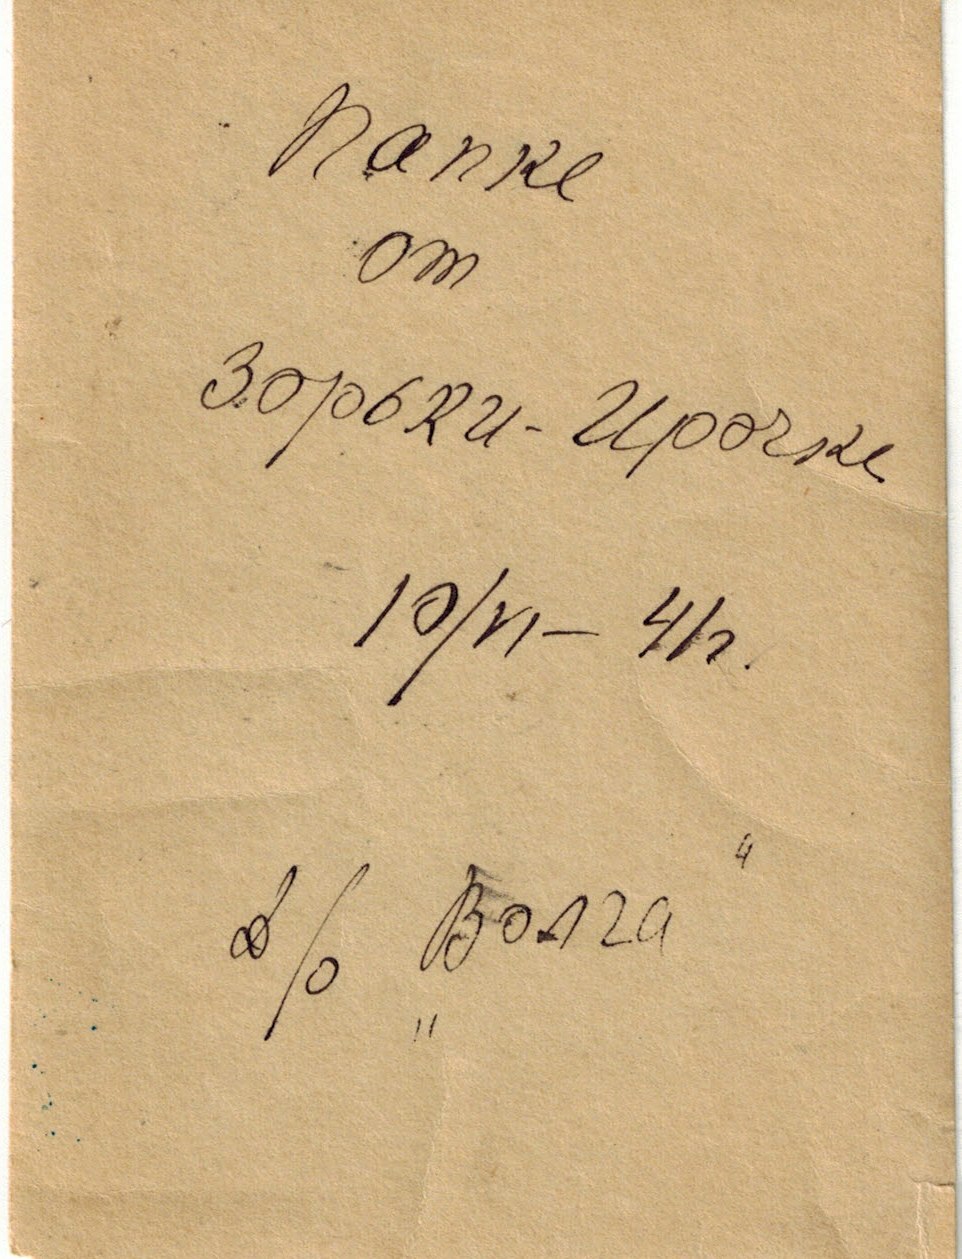 Папке
от
Зорьки-Ирочке
10/VI — 41г.
д/о „Волга“